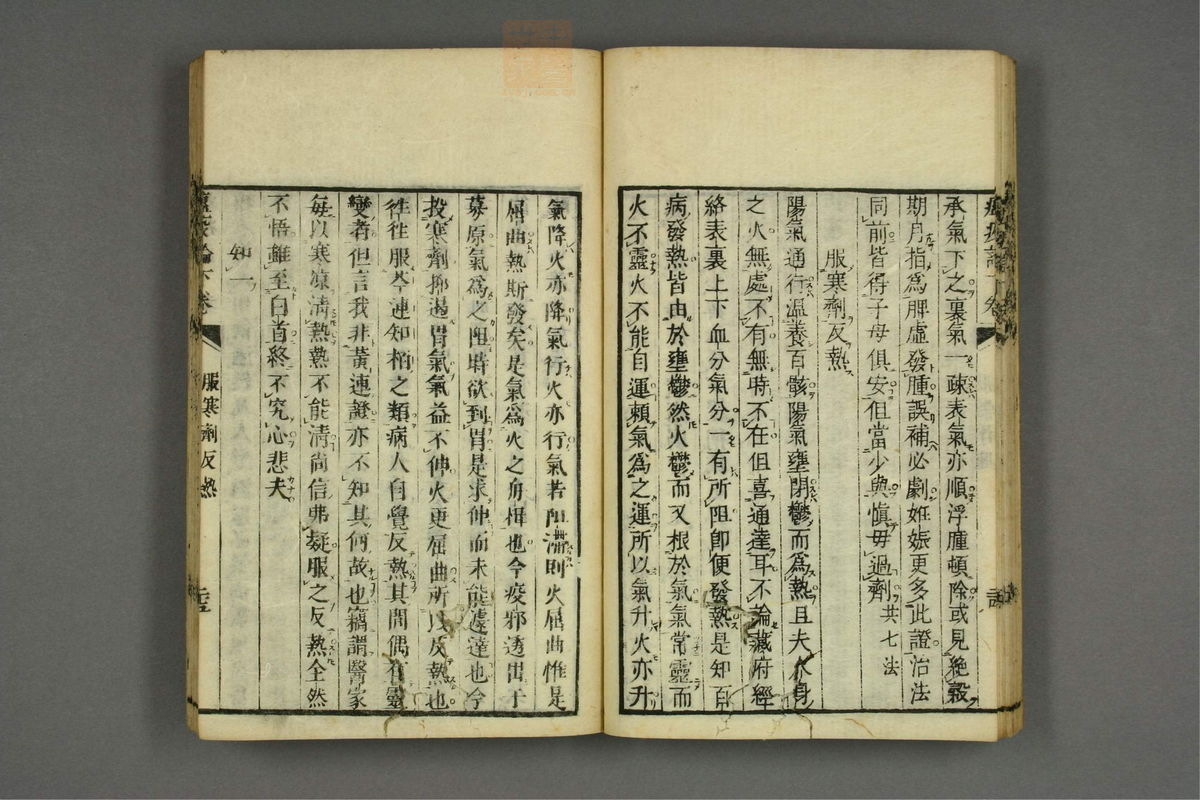 承氣下之裏氣一疎表氣亦順浮腫頓除或見絶穀
期月指爲脾虛發腫誤補必劇姙娠更多此證治法
同前皆得子母俱安但當少與愼毋過劑共七法
服寒劑反熱
陽氣通行溫養百骸陽氣壅閉鬱而爲熱且夫人身
之火無處不有無時不在但喜通達耳不論藏府經
絡表裏上下血分氣分一有所阻卽便發熱是知百
病發熱皆由於壅鬱然火鬱而又根於氣氣常靈而
火不靈火不能自運賴氣爲之運所以氣升火亦升
氣降火亦降氣行火亦行氣若阻滯則火屈曲惟是
屈曲熱斯發矣是氣爲火之舟楫也今疫邪透出于
募原氣爲之阻時欲到胃是求伸而未能遽達也今
投寒劑抑遏胃氣氣益不伸火更屈曲所以反熱也
往往服芩連知栢之類病人自覺反熱其間偶有靈
變者但言我非黃連證亦不知其何故也竊謂醫家
每以寒凉淸熱熱不能淸尙信弗疑服之反熱全然
不悟雖至白首終不究心悲夫
知一
服寒劑反熱